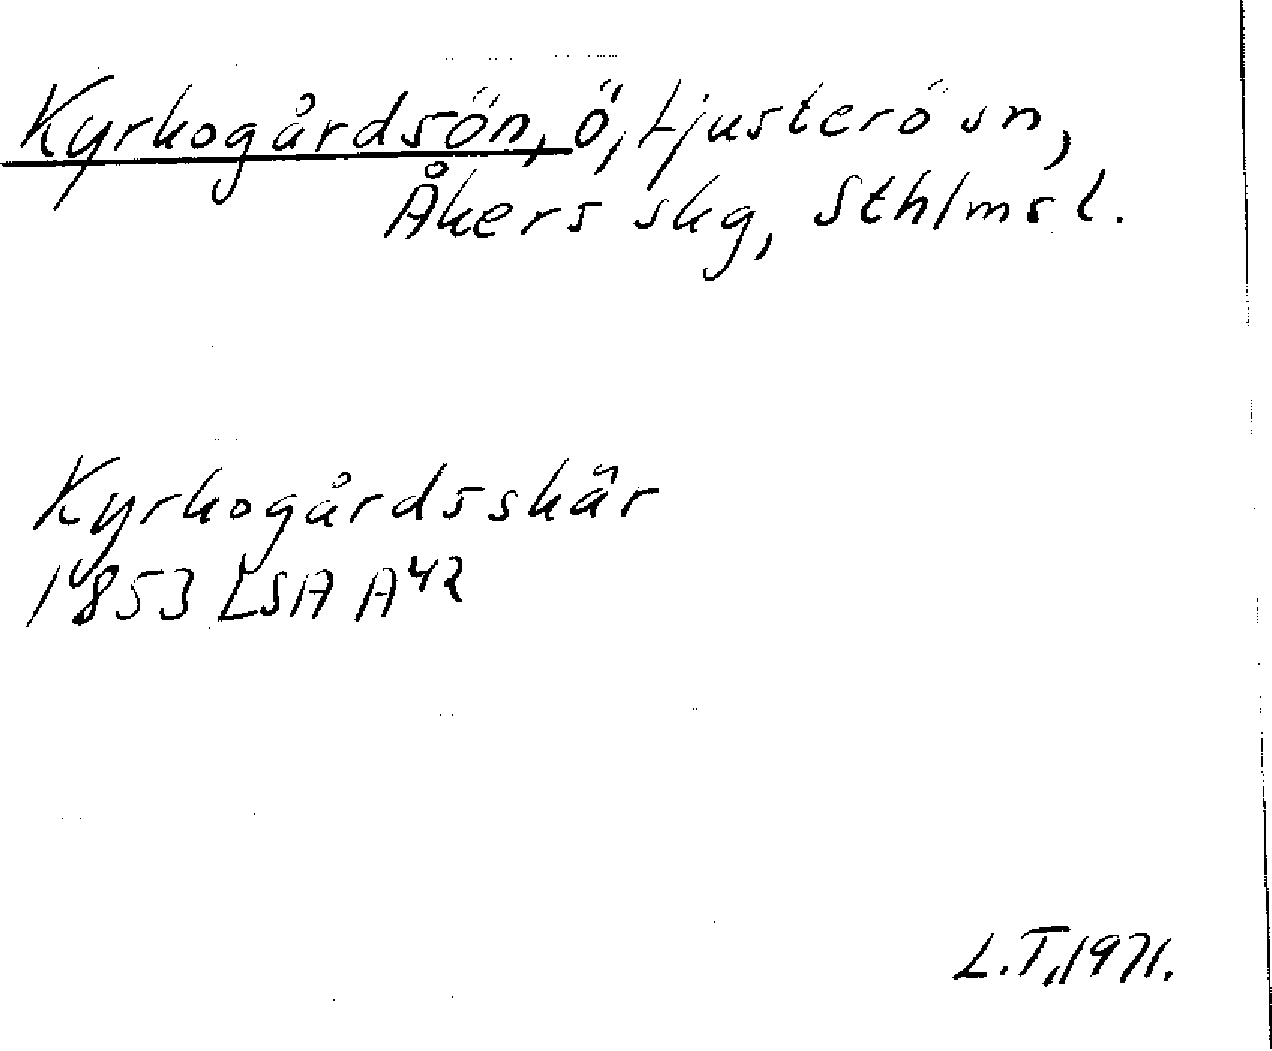 Kyrkogårdsön, ö, Ljusterö sn,
Åkers skg, Sthlms l.
Kyrkogårdsskär
1853 LSA A42
L.T. 1971.